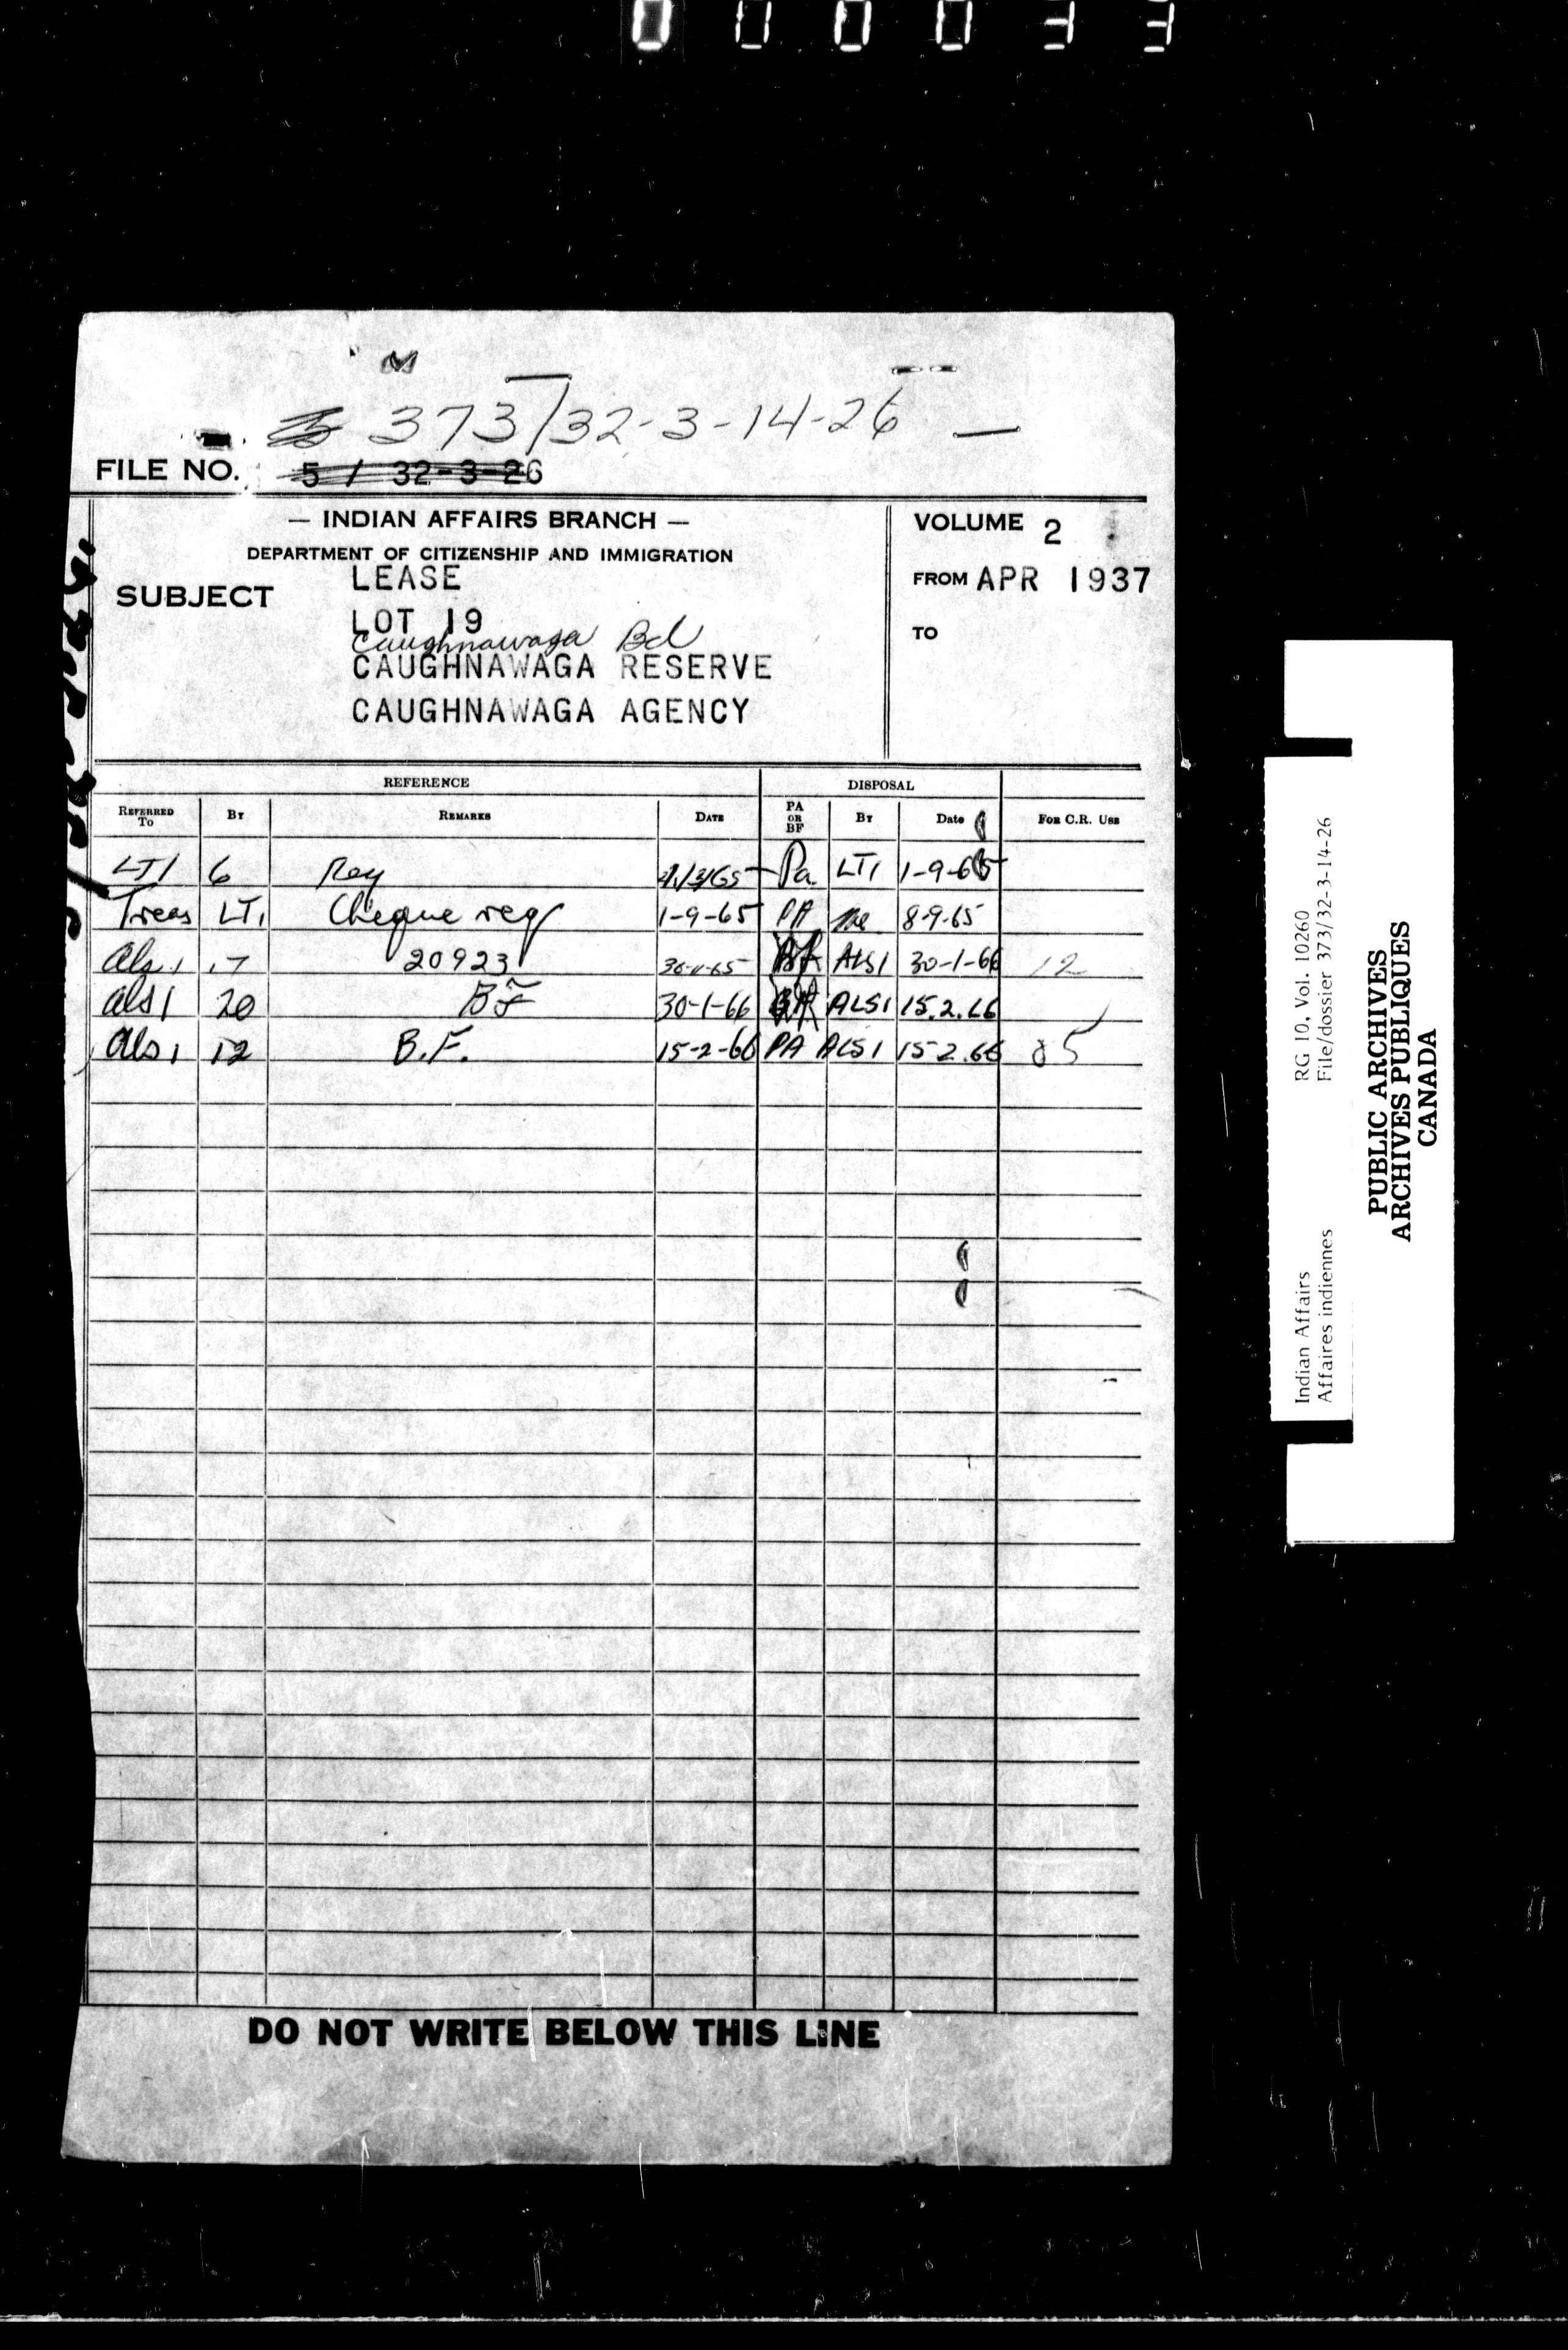 000033
373/32-3-14-26
FILE NO. 5 / 32-3-26
— INDIAN AFFAIRS BRANCH —
DEPARTMENT OF CITIZENSHIP AND IMMIGRATION
SUBJECT
LEASE
LOT 19
Caughnawaga Bd
CAUGHNAWAGA RESERVE
CAUGHNAWAGA AGENCY
VOLUME 2
FROM APR 1937
TO
REFERENCE DISPOSAL
REFERRED TO BY REMARKS DATE PA OR BF BY Date FOR C.R. USE
LT1 6 Req Pa. LT1 1-9-65
Treas LT1 Cheque req 1-9-65 PA 8-9-65
Als1 17 20923 30-11-65 BF ALS1 30-1-66 12
als1 20 BF 30-1-66 ALS1 15.2.66
Als1 12 B.F. 15-2-66 PA ALS1 15.2.66 85
DO NOT WRITE BELOW THIS LINE
Indian Affairs RG 10, Vol. 10260
Affaires indiennes File/dossier 373/32-3-14-26
PUBLIC ARCHIVES
ARCHIVES PUBLIQUES
CANADA